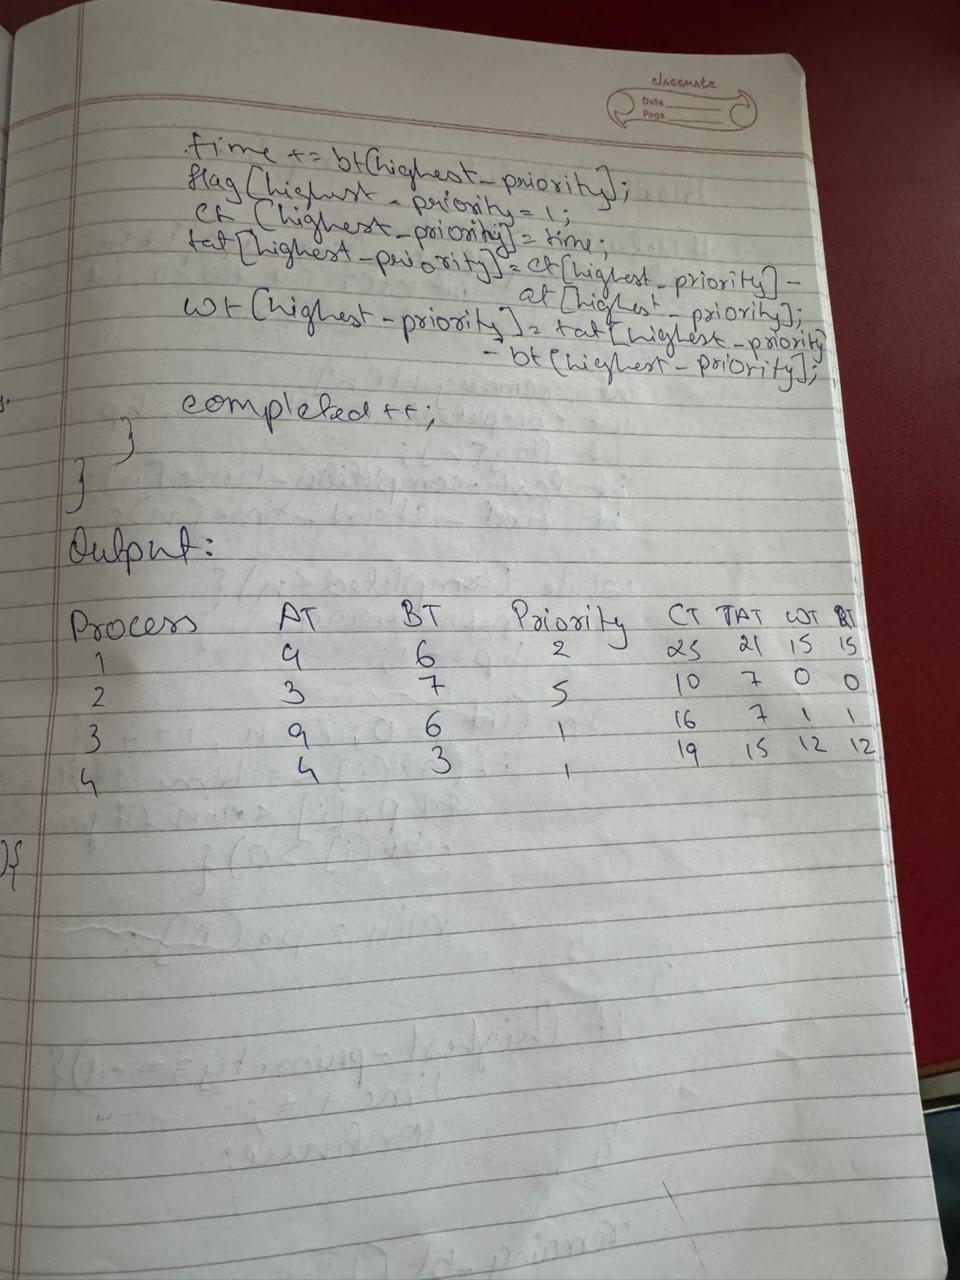 classmate
Date
Page
time += bt[highest_priority];
flag[highest_priority = 1;
ct [highest_priority] = time;
tat[highest_priority] = ct[highest_priority] -
at[highest_priority];
wt [highest_priority] = tat[highest_priority
- bt[highest_priority];
completed ++;
}
}
Output:
Process AT BT Priority CT TAT WT RT
1 4 6 2 25 21 15 15
2 3 7 5 10 7 0 0
3 9 6 1 16 7 1 1
4 4 3 1 19 15 12 12
){